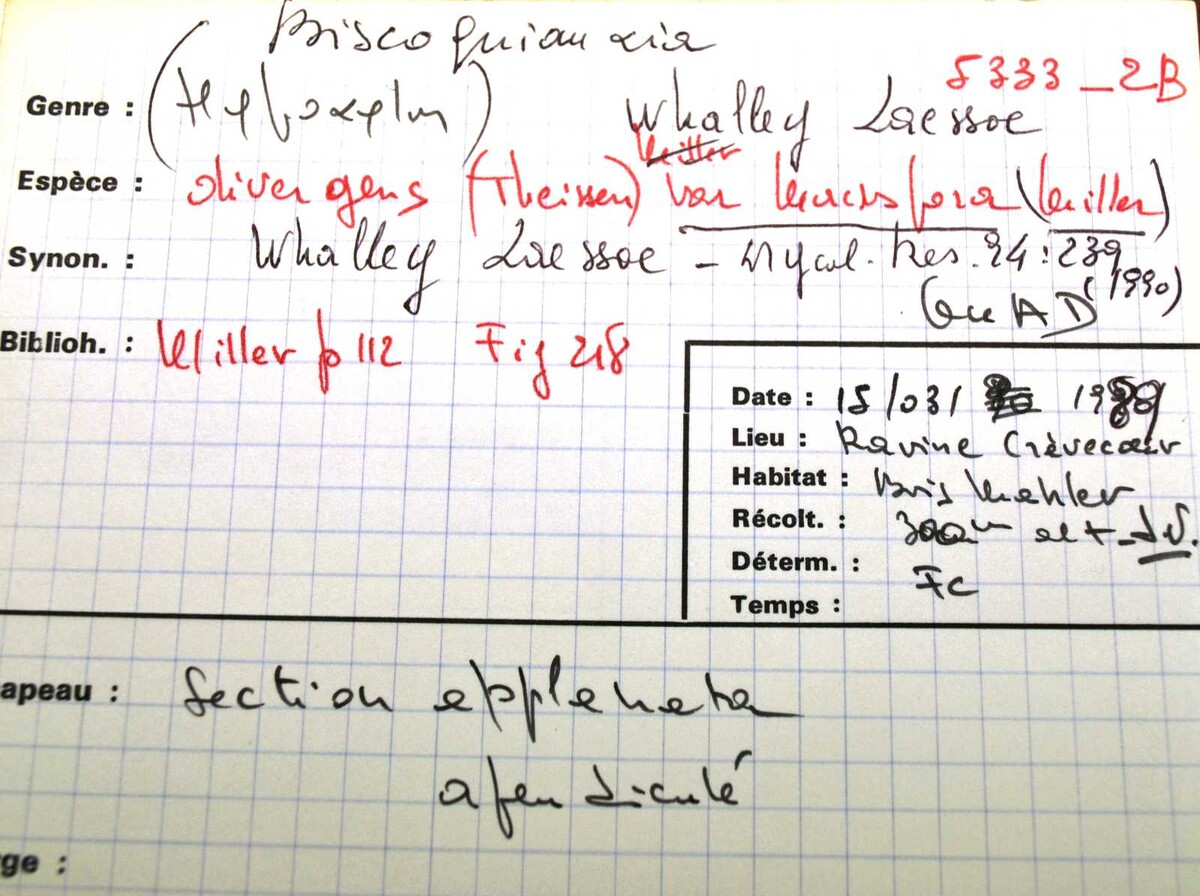 Biscogniauxia
5333_2B
Genre : (Hypoxylon) Whalley Laessoe
Miller
Espèce : divergens (Theissen) var macrospora (Miller)
Synon. : Whalley Laessoe - Mycol. Res. 94:239
(1990)
GUAD
Biblioh. : Miller p 112 Fig 218
Date : 15/03/ 1989
Lieu : Ravine Crèvecœur
Habitat : Bois Mahler
Récolt. : 300m alt - J.V.
Déterm. : FC
Temps :
apeau : Section applanata
apendiculé
rge :